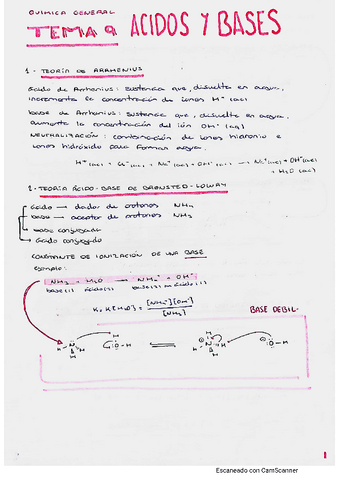 QUIMICA GENERAL
TEMA 9 ACIDOS Y BASES
1- TEORÍA DE ARRHENIUS
ácido de Arrhenius: sustancia que, disuelta en agua,
incrementa la concentración de iones H⁺ (ac)
base de Arrhenius: sustancia que, disuelta en agua,
aumenta la concentración del ión OH⁻ (aq)
NEUTRALIZACIÓN: combinación de iones hidronio e
iones hidróxido para formar agua.
H⁺(ac) + Cl⁻(ac) + Na⁺(ac) + OH⁻(ac) → Na⁺(ac)
+ H₂O (ac)
2- TEORÍA ÁCIDO-BASE DE BRONSTED-LOWRY
ácido → dador de protones NH₄
base → aceptor de protones NH₃
base conjugada
ácido conjugado
CONSTANTE DE IONIZACIÓN DE UNA BASE
Ejemplo:
NH₃ + H₂O → NH₄⁺ + OH⁻
base(1) ácido(2) ácido(1)
[NH₄⁺][OH⁻]
K₁ K[H₂O] = 
[NH₃]
BASE DEBIL
H N H H O H H N H H O H
1
Escaneado con CamScanner